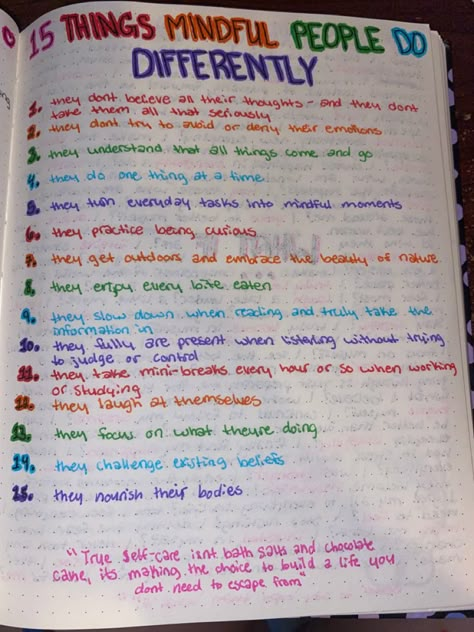 15 THINGS MINDFUL PEOPLE DO
DIFFERENTLY
1. they dont believe all their thoughts - and they dont
take them all that seriously
2. they dont try to avoid or deny their emotions
3. they understand that all things come and go
4. they do one thing at a time
5. they turn everyday tasks into mindful moments
6. they practice being curious
7. they get outdoors and embrace the beauty of nature
8. they enjoy every bite eaten
9. they slow down when reading and truly take the
information in
10. they fully are present when listening without trying
to judge or control
11. they take mini-breaks every hour or so when working
or studying
12. they laugh at themselves
13. they focus on what theyre doing
14. they challenge existing beliefs
15. they nourish their bodies
"True self-care isnt bath salts and chocolate
cake, its making the choice to build a life you
dont need to escape from"